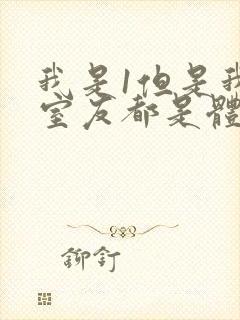 我是1但是我
室友都是體
鉚釘